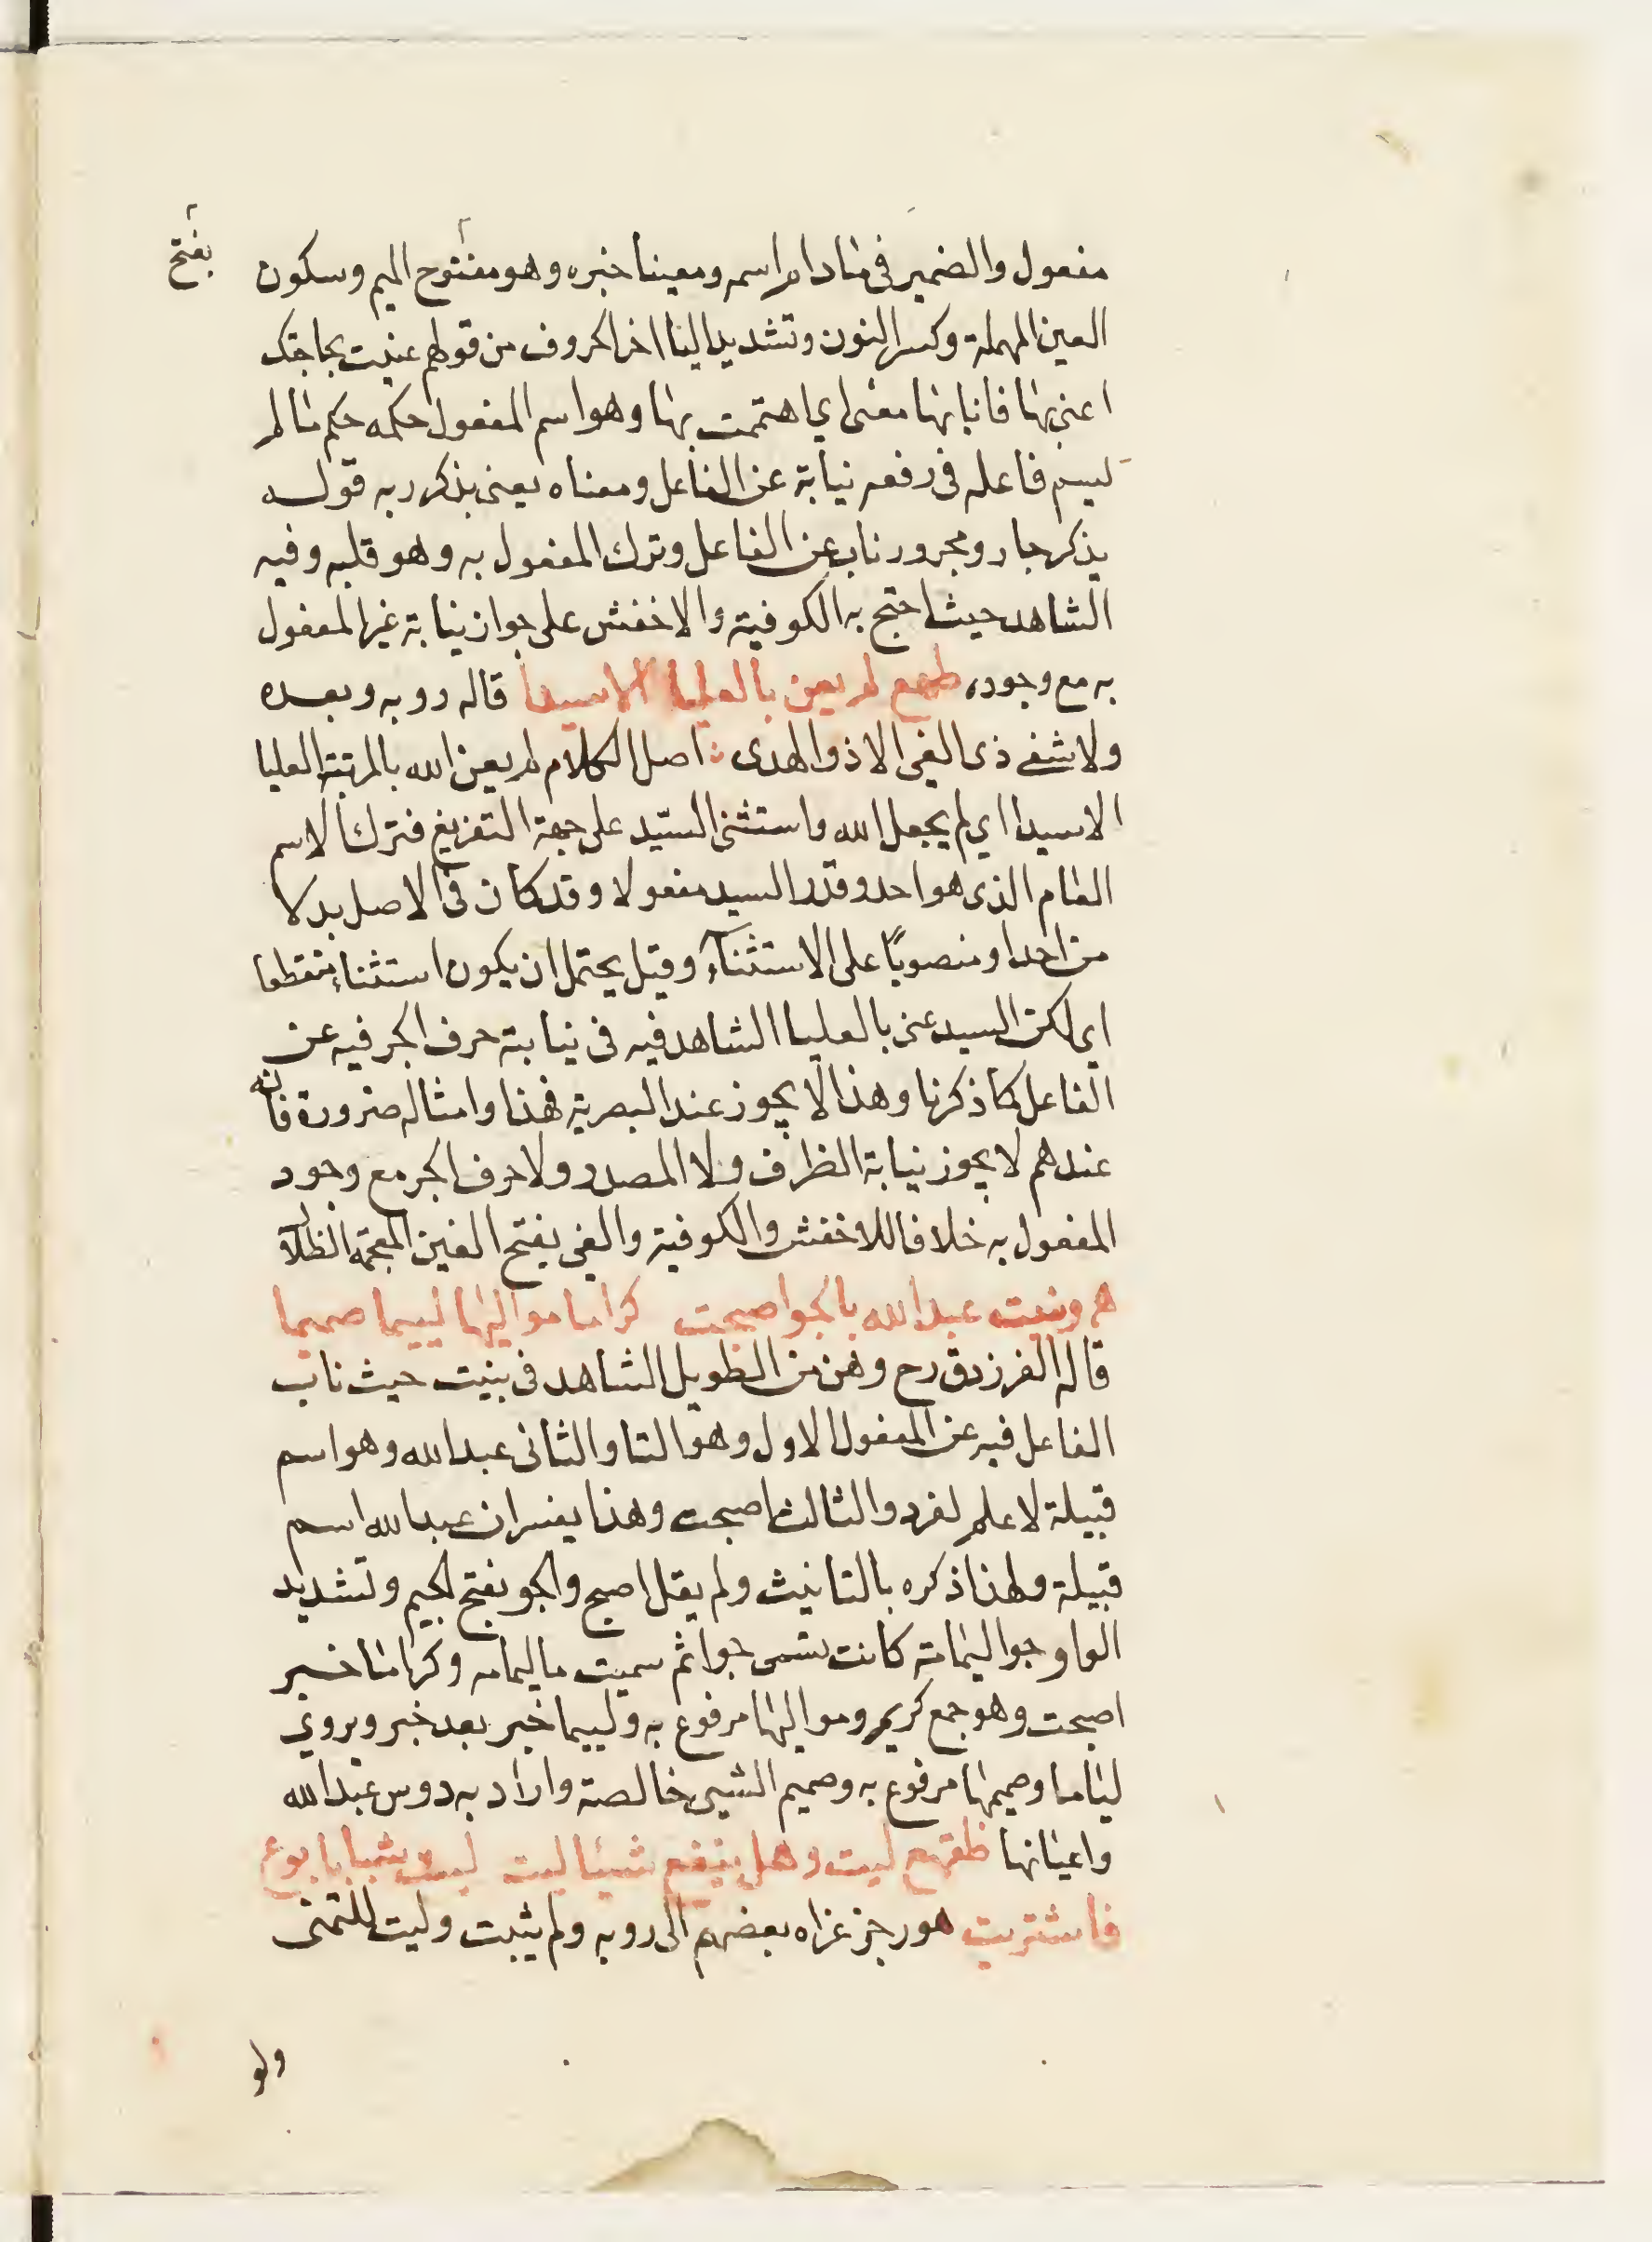 مفعول والضمير فى مادام اسمه ومعينا خبره وهو مفتوح الميم وسكون
بفتح
العين المهملة وكسر النون وتشديد اليا اخر الحروف من قولهم عنيت بحاجتك
اعنى بها فانا بها معنى اي اهتممت بها وهو اسم المفعول حكمه حكم ما لم
يسم فاعله فى رفعه نيابة عن الفاعل ومعناه يعنى بذكر ربه قوله
بذكر جار ومجرور ناب عن الفاعل وترك المفعول به وهو قلبه وفيه
الشاهد حيث احتج به الكوفية والاخفش على جواز نيابة غير المفعول
به مع وجوده طهع لم يعن بالعليا الا سيدا قاله روبه وبعده
ولا شفى ذى الغى الا ذو الهدى اصل الكلام لم يعن الله بالمرتبة العليا
الا سيدا اي لم يجعل الله واستثنى السيّد على جهة التفريغ فترك الاسم
العام الذى هو احد وقدر السيد مفعولا وقد كان فى الاصل بدلا
من احد او منصوبًا على الاستثنآء وقيل يحتمل ان يكون استثناء منقطعا
اي لكن السيد عنى بالعليا الشاهد فيه فى نيابة حرف الجر فيه عن
الفاعل كما ذكرنا وهذا لا يجوز عند البصرية فهذا وامثاله ضرورة فانه
عندهم لا يجوز نيابة الظرف ولا المصدر ولا حرف الجر مع وجود
المفعول به خلافا للاخفش والكوفية والغى بفتح الغين المعجمه الضلال
هم ونبيت عبد الله بالجو اصبحت كراما مواليها لييما صميما
قاله الفرزدق رح وهن من الطويل الشاهد فى نبيت حيث ناب
الفاعل فيه عن المفعول الاول وهو التا والثانى عبد الله وهو اسم
قبيلة لا علم لفرد والثالث اصبحت وهذا يفسر ان عبد الله اسم
قبيلة ولهذا ذكره بالتانيث ولم يقل اصبح والجو بفتح الجيم وتشديد
الواو جو اليمامة كانت تسمى جوا ثم سميت باليمامه وكراما خبر
اصبحت وهو جمع كريم ومواليها مرفوع به ولييما خبر بعد خبر ويروي
لياما وصميمها مرفوع به وصميم الشيى خالصة واراد به دوس عبد الله
واعيانها ظقهع ليت وهل ينفع شيئا ليت ليت شبابا بوع
فاشتريت هو رجز عزاه بعضهم الى روبه ولم يثبت وليت للتمنى
ولو